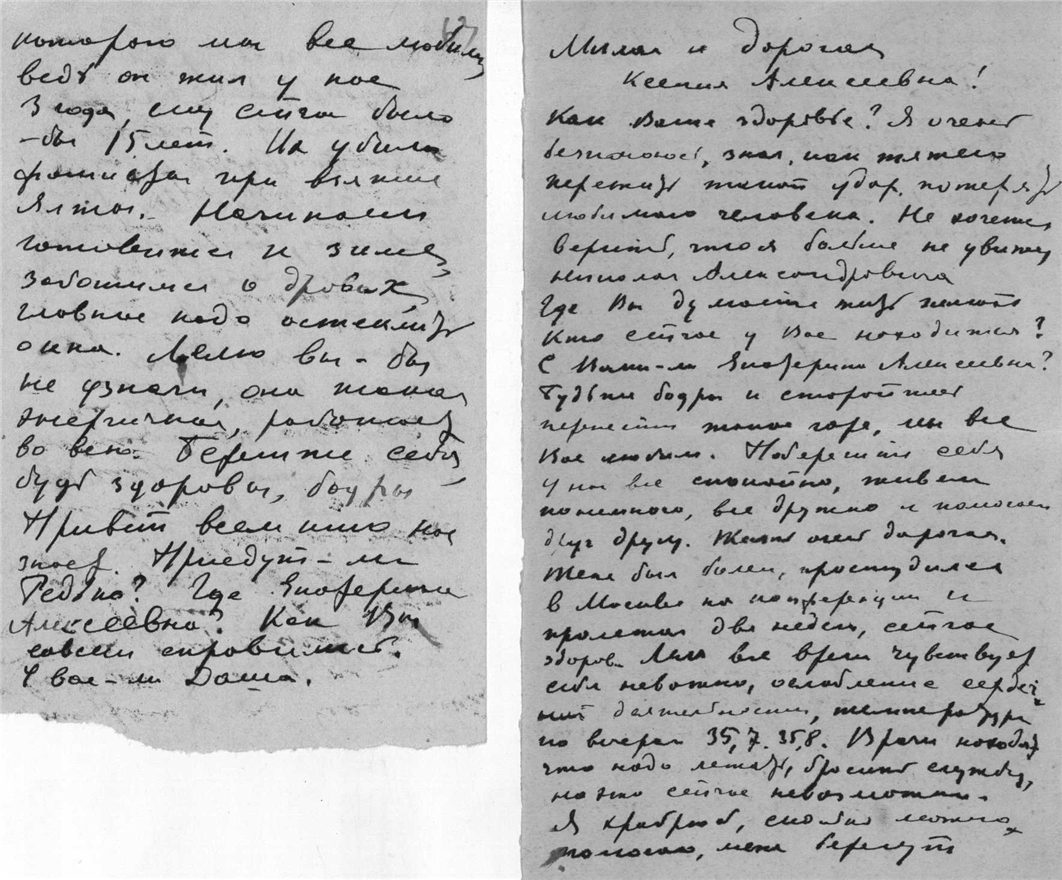 Милая и дорогая
Ксения Алексеевна!
Как Ваше здоровье? Я очень
безпокоюсь, зная, как тяжело
пережить такой удар, потерять
любимого человека. Не хочется
верить, что я больше не увижу
Николая Александровича
Где Вы думаете жить
Кто сейчас у Вас находится?
С Вами-ли Екатерина Алексеевна?
Будьте бодры и
перенести такое горе, мы все
Вас любим. себя
У нас все спокойно, живем
понемногу, все дружно и помогаем
друг другу. Жизнь очень дорогая.
Женя был болен, простудился
в Москве на конференции и
пролежал две недели, сейчас
здоров. Леля все время чувствует
себя неважно, ослабление сердеч-
ной деятельности, температура
по вечерам 35,7. 35,8. Врачи находят
что надо лежать, бросить службу,
но это сейчас невозможно.
Я храбрюсь, сколько можно
помогаю, меня берегут
67
которого мы все любили
ведь он жил у нас
3 года, ему сейчас было
-бы 15 лет. Их убили
фашисты при взятии
Ялты. Начинаем
готовиться к зиме,
заботимся о дровах,
главное надо остеклить
окна. Лелю вы-бы
не узнали, она такая
энергичная, работает
во всю. Берегите себя,
будь здоровы, бодры
Привет всем кто нас
знает. Приедут-ли
Редько? Где Екатерина
Алексеевна? Как Вы
совсем справились.
У вас-ли Даша.